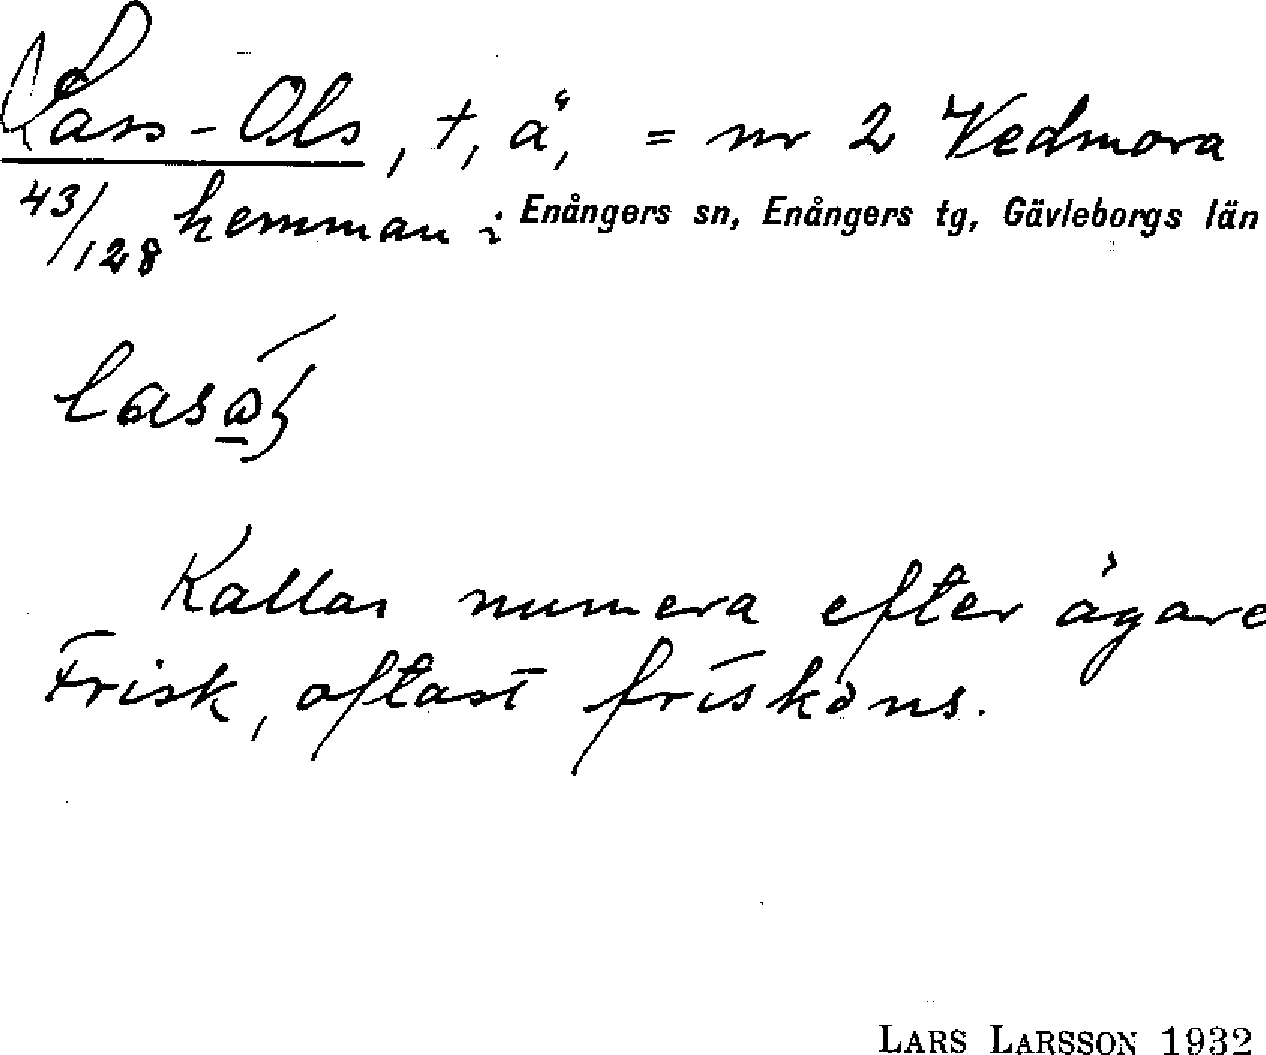 Lars-Ols, †, ä, = nr 2 Vedmora
43/128 hemman i Enångers sn, Enångers tg, Gävleborgs län
Kallas numera efter ägare
Frisk, oftast friskòns.
LARS LARSSON 1932